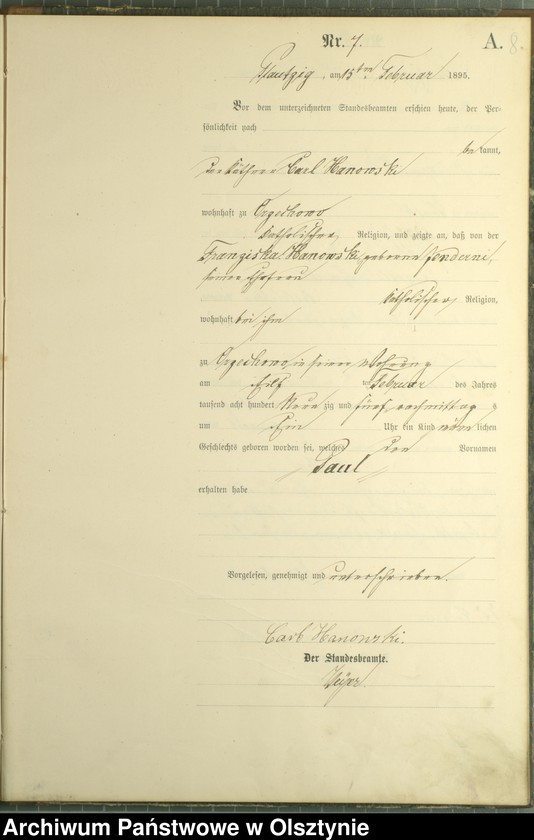 Nr. 7. A. 8.
Plautzig, am 15ten Februar 1895.
Vor dem unterzeichneten Standesbeamten erschien heute, der Per-
sönlichkeit nach
bekannt,
der Käthner Carl Hanowski
wohnhaft zu Orzechowo
katholischer Religion, und zeigte an, daß von der
Franziska Hanowski, geborne
seiner Ehefrau
katholischer Religion,
wohnhaft bei ihm
zu Orzechowo, in seiner Wohnung
am elf ten Februar des Jahres
tausend acht hundert neun zig und fünf, nachmittag s
um Ein Uhr ein Kind männ lichen
Geschlechts geboren worden sei, welches den Vornamen
Paul
erhalten habe
Vorgelesen, genehmigt und unterschrieben.
Carl Hanowski.
Der Standesbeamte.
Archiwum Państwowe w Olsztynie